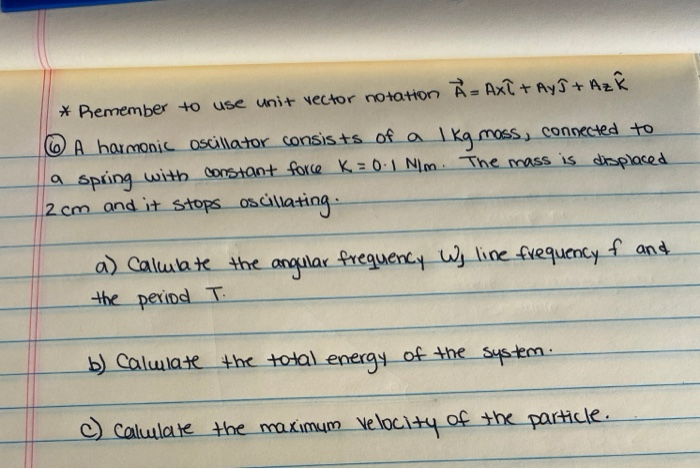 * Remember to use unit vector notation A⃗ = Axî + Ayĵ + Azk̂
⑥ A harmonic oscillator consists of a 1 kg mass, connected to
a spring with constant force K = 0.1 N/m. The mass is displaced
2 cm and it stops oscillating.
a) Calculate the angular frequency ω, line frequency f and
the period T.
b) Calculate the total energy of the system.
c) Calculate the maximum velocity of the particle.